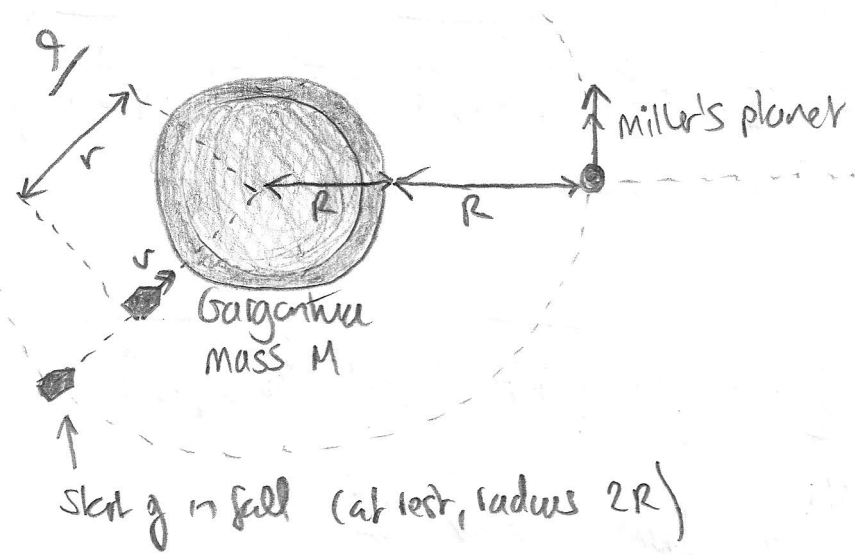 9/
r
Miller's planet
R
R
v
Gargantua
mass M
start of infall (at rest, radius 2R)